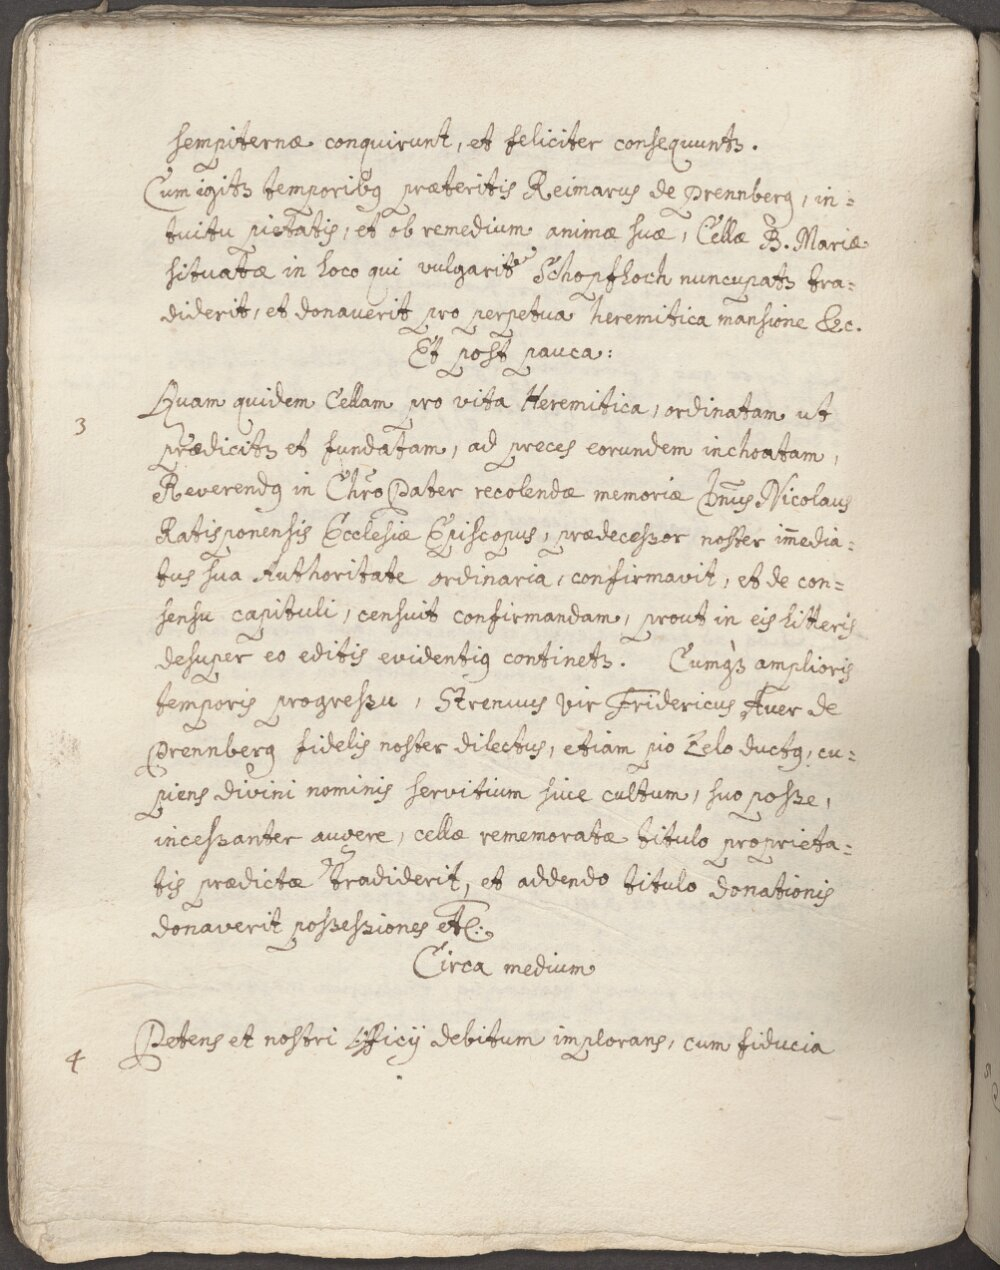 sempiternæ conquirunt, et feliciter consequuntꝫ.
Cum igitꝫ temporibꝯ præteritis Reimarus de Prennberg, in=
tuitu pietatis, et ob remedium animæ suæ, Cellæ B. Mariæ
situatæ in loco qui vulgarit' Schopfloch nuncupatꝫ tra=
diderit, et donaverit pro perpetua heremitica mansione &c.
Et post pauca:
3 Quam quidem Cellam pro vita Heremitica, ordinatam ut
prædicitꝫ et fundatam, ad preces eorundem inchoatam,
Reverendꝯ in Chro Pater recolendæ memoriæ Dnus Nicolaus
Ratisponensis Ecclesiæ Episcopus, prædecessor noster im̄edia=
tus sua Authoritate ordinaria, confirmavit, et de con=
sensu capituli, censuit confirmandam, prout in eis litteris
desuper eo editis evidentiꝯ continetꝫ. Cumqꝫ amplioris
temporis progressu, Strenuus vir Fridericus Auer de
Prennberg fidelis noster dilectus, etiam pio Zelo ductꝯ, cu=
piens divini nominis servitium sive cultum, suo posse,
incessanter augere, cellæ rememoratæ titulo proprieta=
tis prædictæ tradiderit, et addendo titulo donationis
donaverit possessiones etc:
Circa medium
4 Petens et nostri officij debitum implorans, cum fiducia